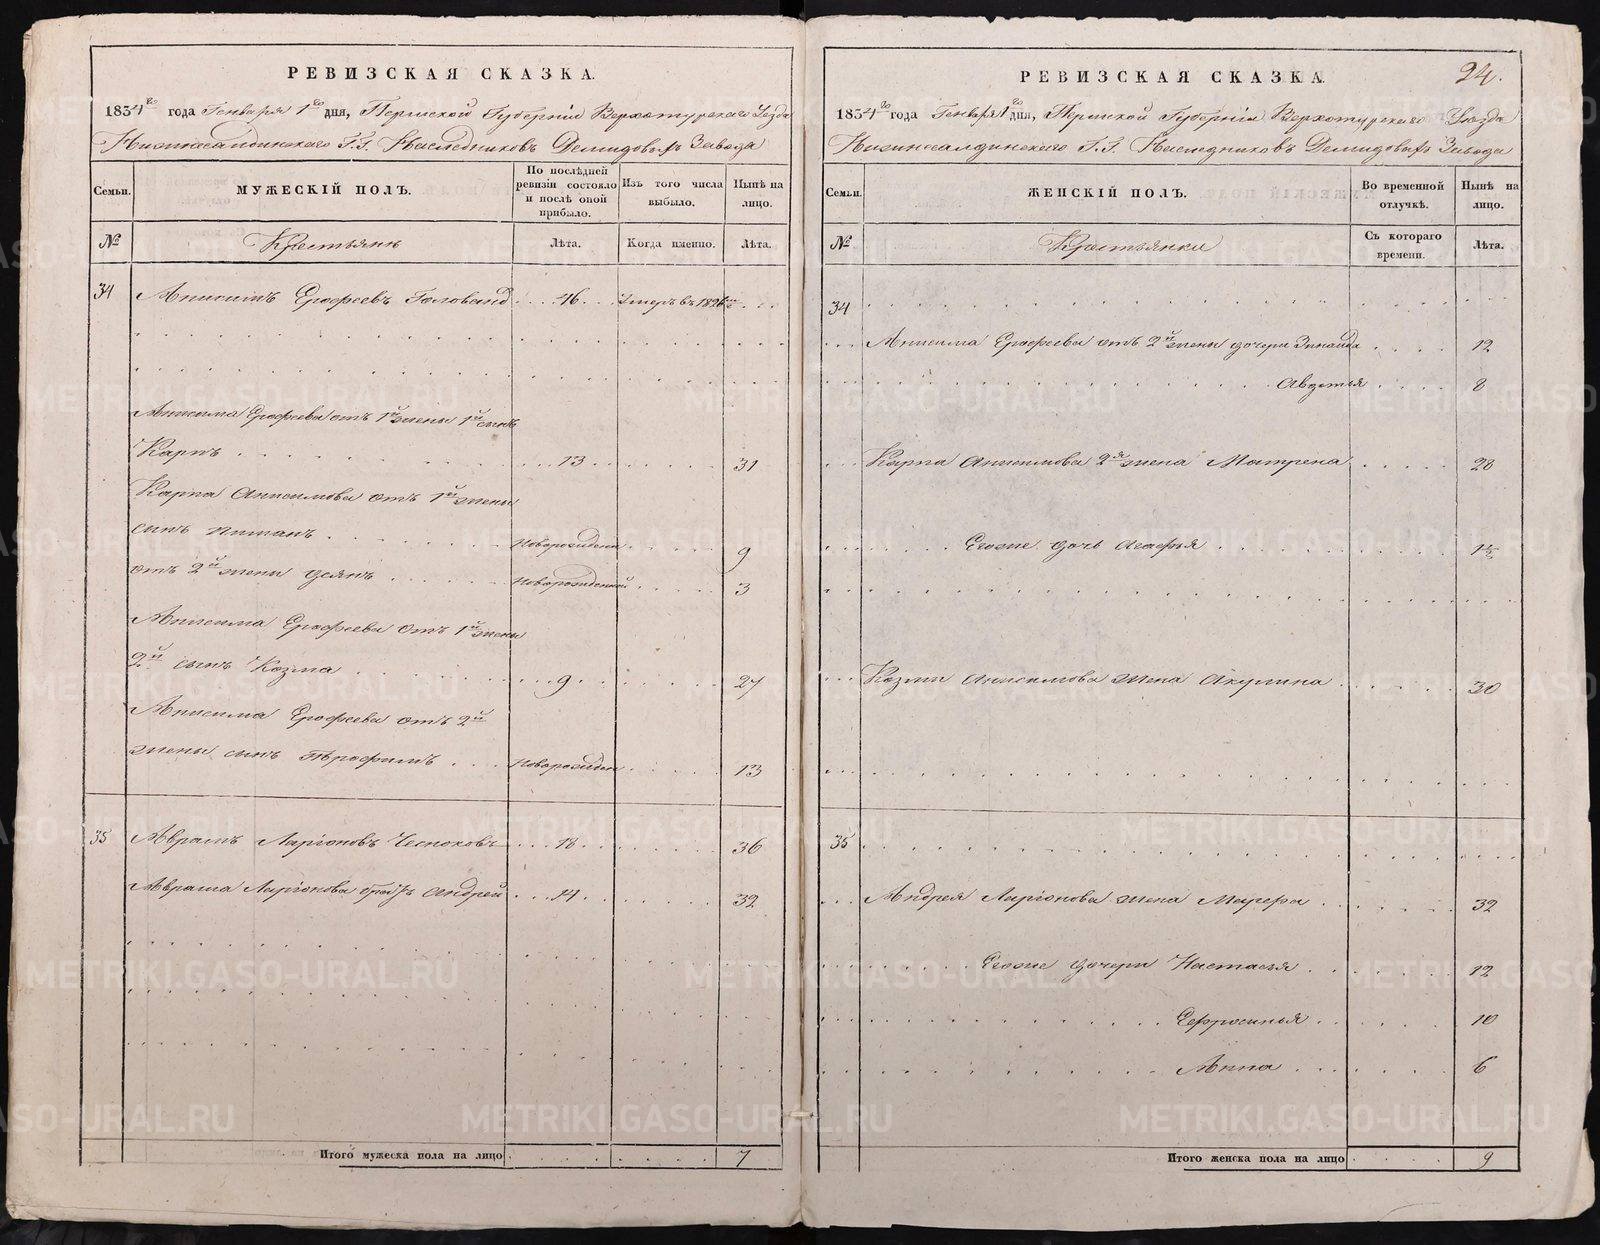 РЕВИЗСКАЯ СКАЗКА.
1834го года Генваря 1го дня, Пермской Губерніи Верхотурскаго Уезда
Нижнесалдинскаго Г.Г. Наследниковъ Демидовыхъ Завода
Семьи.
МУЖЕСКІЙ ПОЛЪ.
По послѣдней ревизіи состояло и послѣ оной прибыло.
Изъ того числа выбыло.
Нынѣ на лицо.
№
Крестьянъ
Лѣта.
Когда именно.
Лѣта.
34 Анисимъ Ерофеевъ 46 Умеръ въ 1826мъ
Анисима Ерофеева отъ 1й жены 1й сынъ
Карпъ 13 31
Карпа Анисимова отъ 1й жены
сынъ Новорожденн 9
отъ 2й жены Новорожденной 3
Анисима Ерофеева отъ 1й жены
2й сынъ Козма 9 27
Анисима Ерофеева отъ 2й
жены сынъ Новорожден 13
35 Аврамъ Ларіоновъ Чесноковъ 18 36
Аврама Ларіонова братъ Андрей 14 32
Итого мужеска пола на лицо 7
24.
РЕВИЗСКАЯ СКАЗКА.
1834го года Генваря 1го дня, Пермской Губерніи Верхотурскаго Уѣзда
Нижнесалдинскаго Г.Г. Наследниковъ Демидовыхъ Завода
Семьи.
ЖЕНСКІЙ ПОЛЪ.
Во временной отлучкѣ.
Нынѣ на лицо.
№
Крестьянки
Съ котораго времени.
Лѣта.
34
Анисима Ерофеева отъ 2й жены дочери Зинаида 12
Авдотья 8
Карпа Анисимова 2я жена Матрена 28
Егоже дочь Агафья 1½
Козмы Анисимова жена Акулина 30
35
Андрея Ларіонова жена Марфа 32
Егоже дочери Настасья 12
Ефросинья 10
Анна 6
Итого женска пола на лицо 9
METRIKI.GASO-URAL.RU